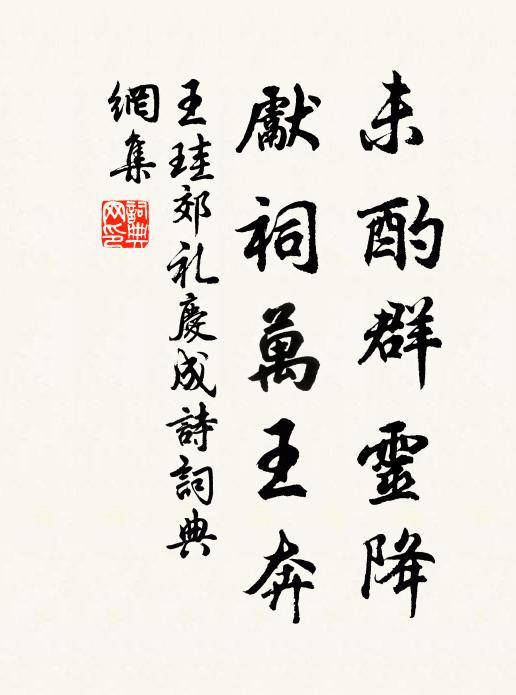 未酌群靈降
獻祠萬王奔
王珪郊礼慶成詩詞典
網集
詞典
网印